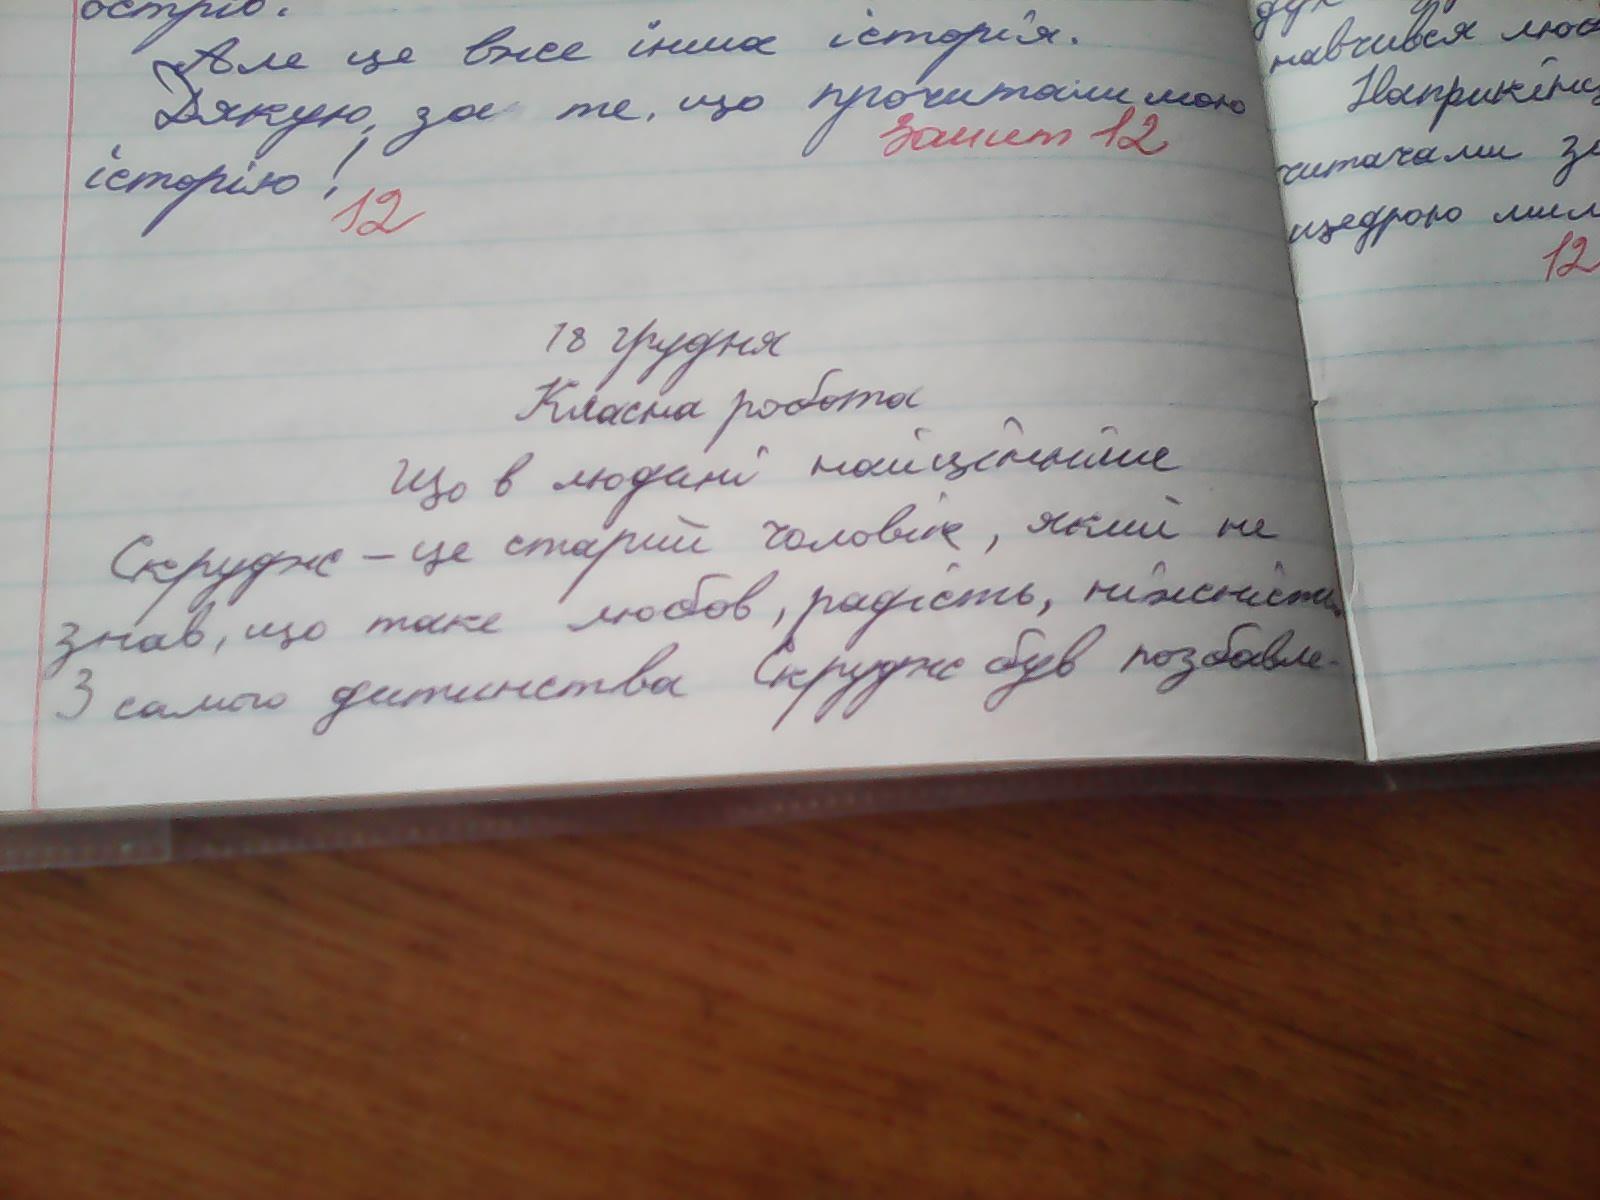 острів.
Але це вже інша історія.
Дякую, за те, що прочитали мою
історію!
зошит 12
12
18 грудня
Класна робота
Що в людині найцінніше
Скрудж – це старий чоловік, який не
знав, що таке любов, радість, ніжність.
З самого дитинства Скрудж був позбавле-
навчився
Наприкінц
читачами
щедрою
12